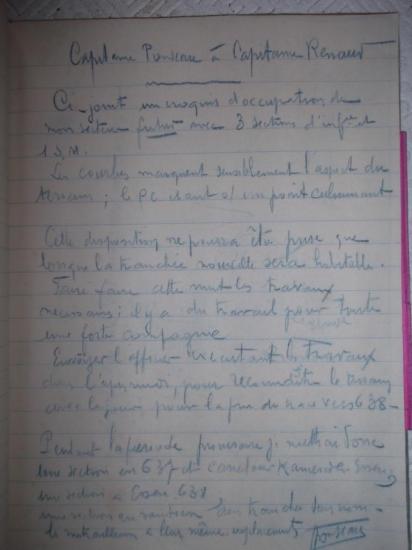 Capitaine Ponceau à Capitaine Renaud
Ci-joint un croquis d'occupation de
mon secteur futur avec 3 sections d'inf^ie et
1 S.M.
Les courbes marquent sensiblement l'aspect du
terrain ; le PC étant s/ un point culminant
Cette disposition ne pourra être prise que
lorsque la tranchée nouvelle sera habitable.
Faire faire cette nuit les travaux
nécessaires : il y a du travail pour toute
une forte compagnie
Envoyer l'officier exécutant les travaux
dans l'après midi, pour reconnaître le terrain
avec le jour pour la fin du vers 638 -
Pendant la période provisoire je mettrai donc
une section en 637 du
une section à 638
une section en soutien des tranchées
les mitrailleuses à leurs mêmes emplacements Ponceau